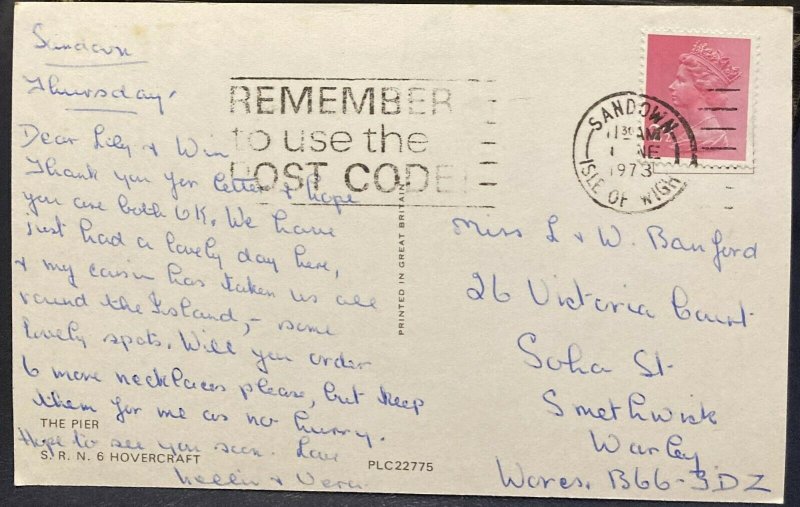 Sandown
Thursday.
Dear Lily & Win
Thank you for letter & hope
you are both OK. We have
just had a lovely day here,
& my cousin has taken us all
round the Island, – some
lovely spots. Will you order
6 more necklaces please, but keep
them for me as no hurry.
Hope to see you soon. Love
Nellie & Vera.
THE PIER
S. R. N. 6 HOVERCRAFT
PLC22775
PRINTED IN GREAT BRITAIN
REMEMBER
to use the
POST CODE
SANDOWN
11 30 AM
1 NE
1973
ISLE OF WIGH
Miss L & W. Banford
26 Victoria Court
Soho St
Smethwick
Warley
Worcs. B66-3DZ